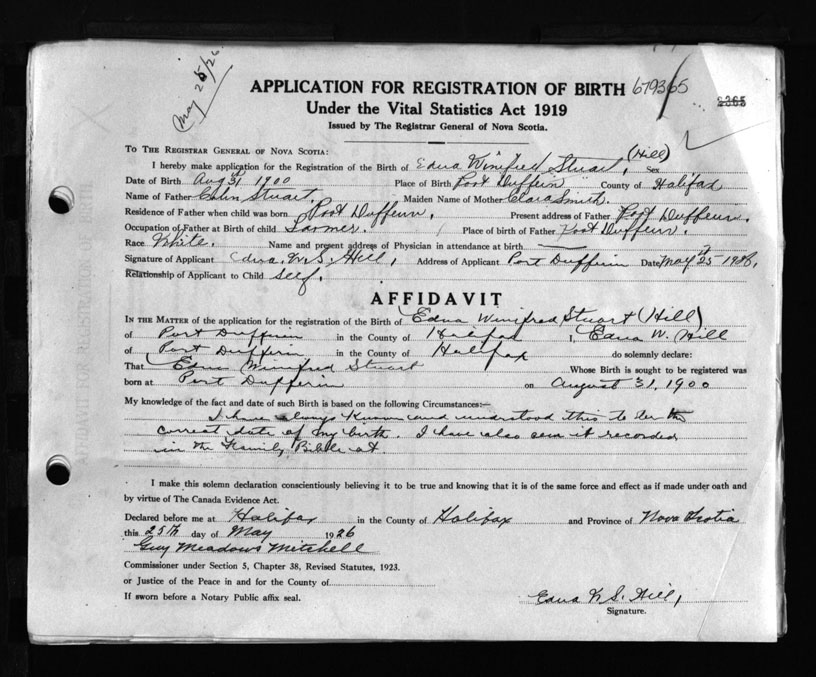 May 25/26
APPLICATION FOR REGISTRATION OF BIRTH 679365
Under the Vital Statistics Act 1919
Issued by The Registrar General of Nova Scotia.
TO THE REGISTRAR GENERAL OF NOVA SCOTIA:
I hereby make application for the Registration of the Birth of Edna Winifred Stuart, (Hill) Sex
Date of Birth Aug 31 1900 Place of Birth Port Dufferin County of Halifax
Name of Father Stuart. Maiden Name of Mother Clara Smith.
Residence of Father when child was born Port Dufferin. Present address of Father Port Dufferin.
Occupation of Father at Birth of child Farmer. Place of birth of Father Port Dufferin.
Race White. Name and present address of Physician in attendance at birth —
Signature of Applicant Edna. W. S. Hill, Address of Applicant Port Dufferin Date May 25 1926.
Relationship of Applicant to Child Self.
AFFIDAVIT
IN THE MATTER of the application for the registration of the Birth of Edna Winifred Stuart (Hill)
of Port Dufferin in the County of Halifax I, Edna W. Hill
of Port Dufferin in the County of Halifax do solemnly declare:
That Edna Winifred Stuart Whose Birth is sought to be registered was
born at Port Dufferin on August 31, 1900
My knowledge of the fact and date of such Birth is based on the following Circumstances:—
I have always known and understood this to be the
correct date of my birth. I have also seen it recorded
in the Family Bible at.
I make this solemn declaration conscientiously believing it to be true and knowing that it is of the same force and effect as if made under oath and
by virtue of The Canada Evidence Act.
Declared before me at Halifax in the County of Halifax and Province of Nova Scotia
this 25th day of May 1926
Guy Meadows Mitchell
Commissioner under Section 5, Chapter 38, Revised Statutes, 1923.
or Justice of the Peace in and for the County of
If sworn before a Notary Public affix seal.
Edna W S. Hill,
Signature.